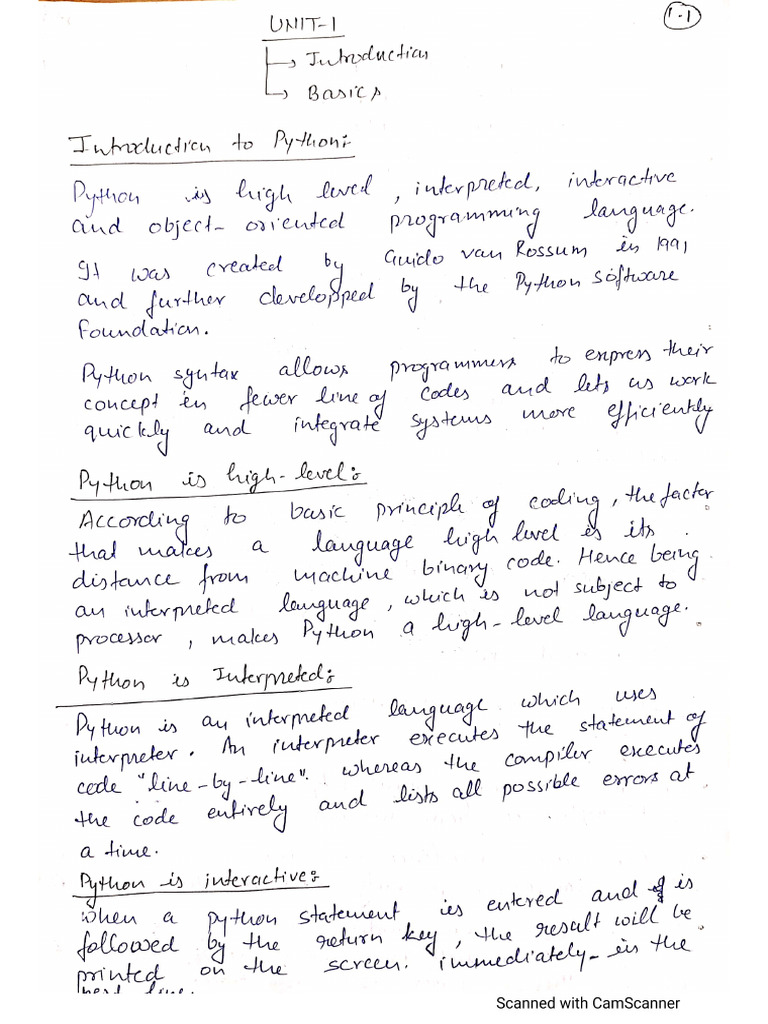 1.1
UNIT-1
→ Introduction
→ Basics
Introduction to Python:-
Python is high level, interpreted, interactive
and object-oriented programming language.
It was created by Guido van Rossum in 1991
and further developped by the Python Software
foundation.
Python syntax allows programmers to express their
concept in fewer line of codes and lets us work
quickly and integrate systems more efficiently
Python is high-level:
According to basic principle of coding, the factor
that makes a language high level is its
distance from machine binary code. Hence being
an interpreted language, which is not subject to
processor, makes Python a high-level language.
Python is Interpreted:
Python is an interpreted language which uses
interpreter. An interpreter executes the statement of
code "line-by-line". whereas the compiler executes
the code entirely and lists all possible errors at
a time.
Python is interactive:
When a python statement is entered and is
followed by the return key, the result will be
printed on the screen. immediately- in the
next line.
Scanned with CamScanner